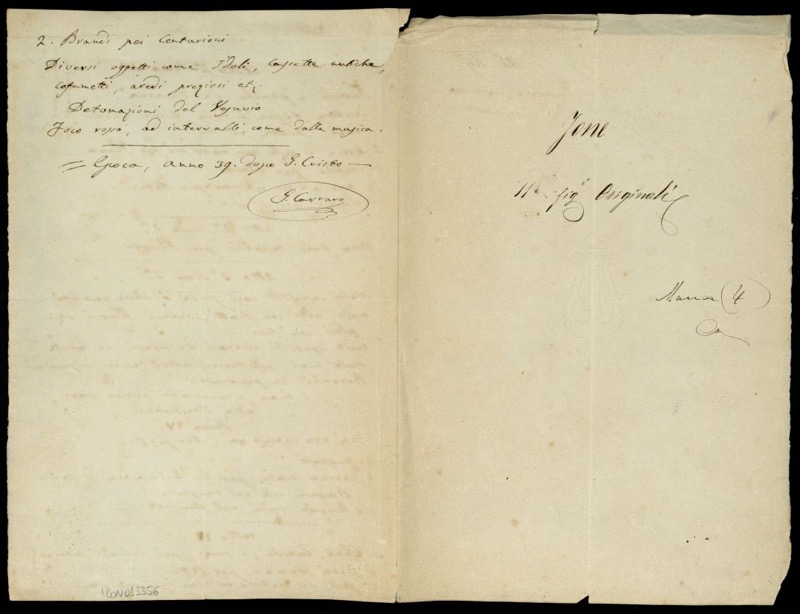 2. Brandi pei Centurioni
Diversi oggetti come Idoli, Cassette antiche,
cofanetti, aredi preziosi etc
Detonazioni del Vesuvio
Foco rosso, ad intervalli, come dalla musica.
= Epoca, anno 39. dopo G. Cristo —
G. Carraro
Jone
11 figi Originali
Manca (4
ICON013356